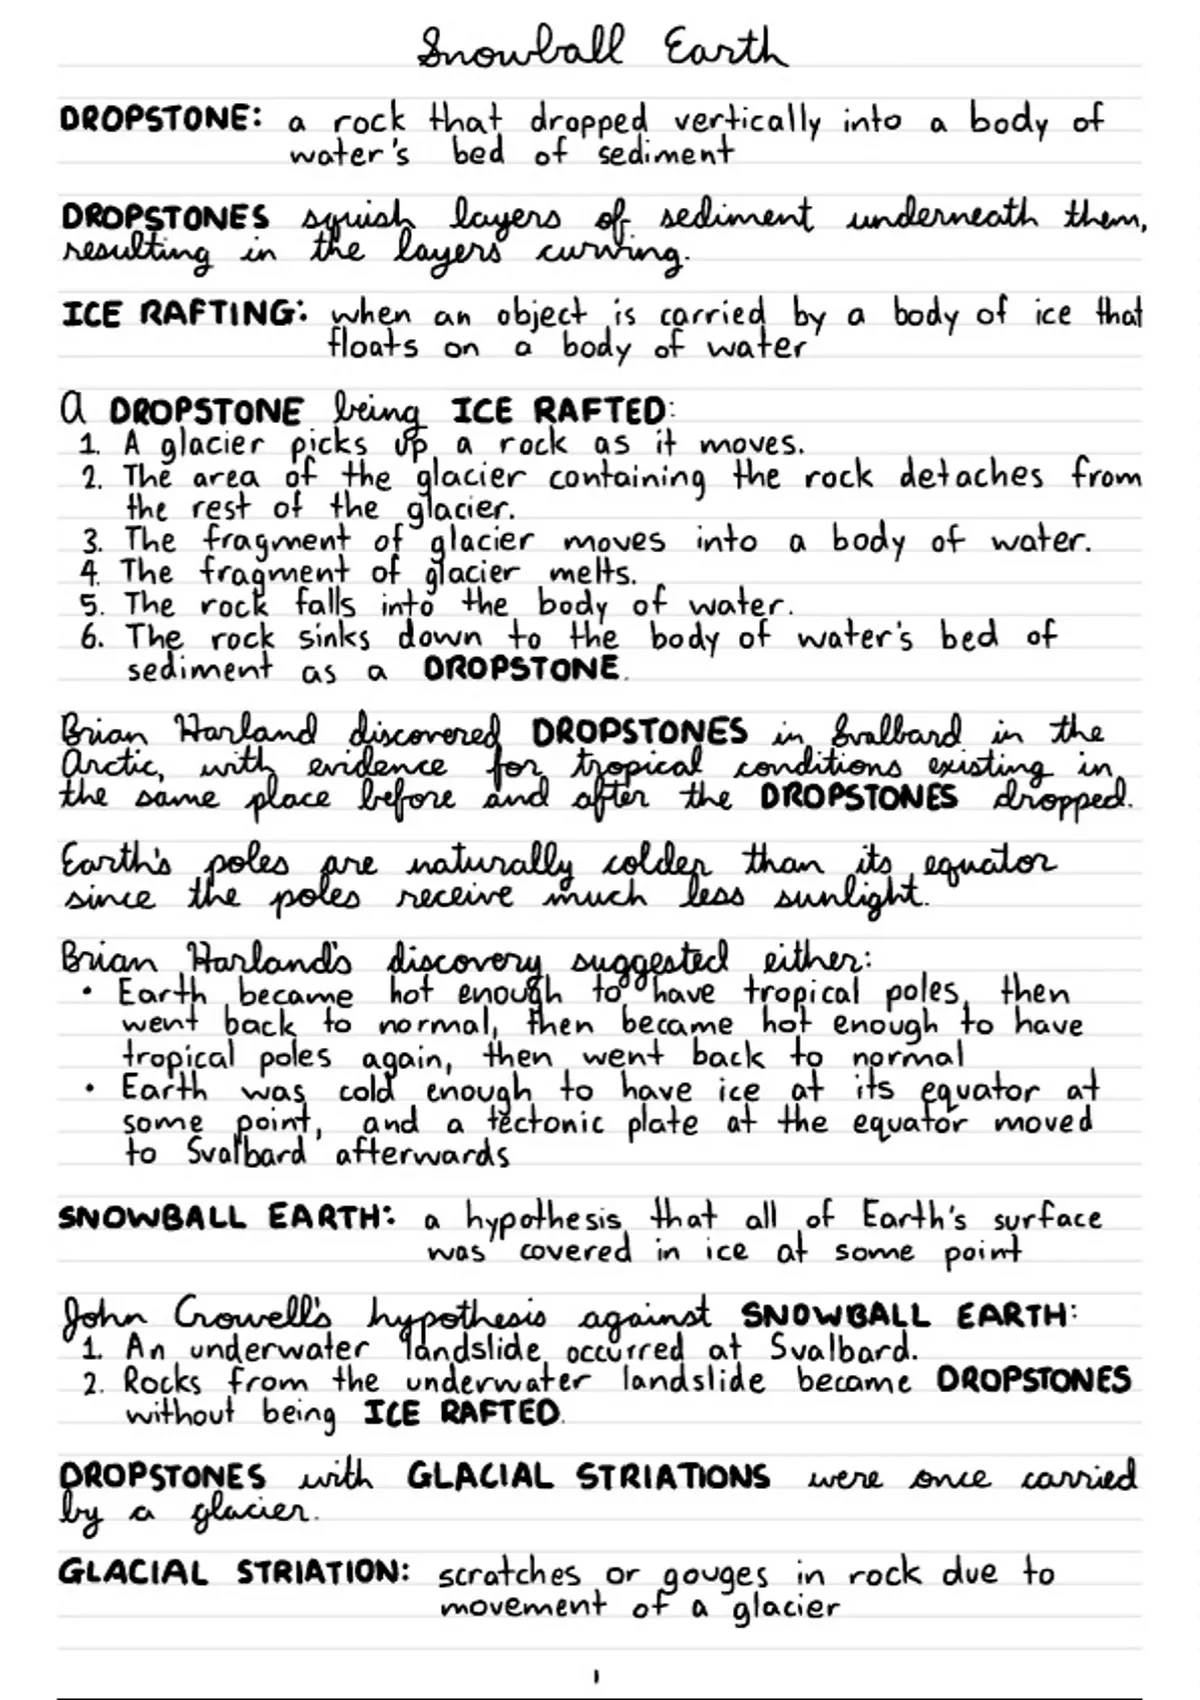 Snowball Earth
DROPSTONE: a rock that dropped vertically into a body of
water's bed of sediment
DROPSTONES squish layers of sediment underneath them,
resulting in the layers curving.
ICE RAFTING: when an object is carried by a body of ice that
floats on a body of water
A DROPSTONE being ICE RAFTED:
1. A glacier picks up a rock as it moves.
2. The area of the glacier containing the rock detaches from
the rest of the glacier.
3. The fragment of glacier moves into a body of water.
4. The fragment of glacier melts.
5. The rock falls into the body of water.
6. The rock sinks down to the body of water's bed of
sediment as a DROPSTONE.
Brian Harland discovered DROPSTONES in Svalbard in the
Arctic, with evidence for tropical conditions existing in
the same place before and after the DROPSTONES dropped.
Earth's poles are naturally colder than its equator
since the poles receive much less sunlight.
Brian Harland's discovery suggested either:
• Earth became hot enough to have tropical poles, then
went back to normal, then became hot enough to have
tropical poles again, then went back to normal
• Earth was cold enough to have ice at its equator at
some point, and a tectonic plate at the equator moved
to Svalbard afterwards
SNOWBALL EARTH: a hypothesis that all of Earth's surface
was covered in ice at some point
John Crowell's hypothesis against SNOWBALL EARTH:
1. An underwater landslide occurred at Svalbard.
2. Rocks from the underwater landslide became DROPSTONES
without being ICE RAFTED.
DROPSTONES with GLACIAL STRIATIONS were once carried
by a glacier.
GLACIAL STRIATION: scratches or gouges in rock due to
movement of a glacier
1